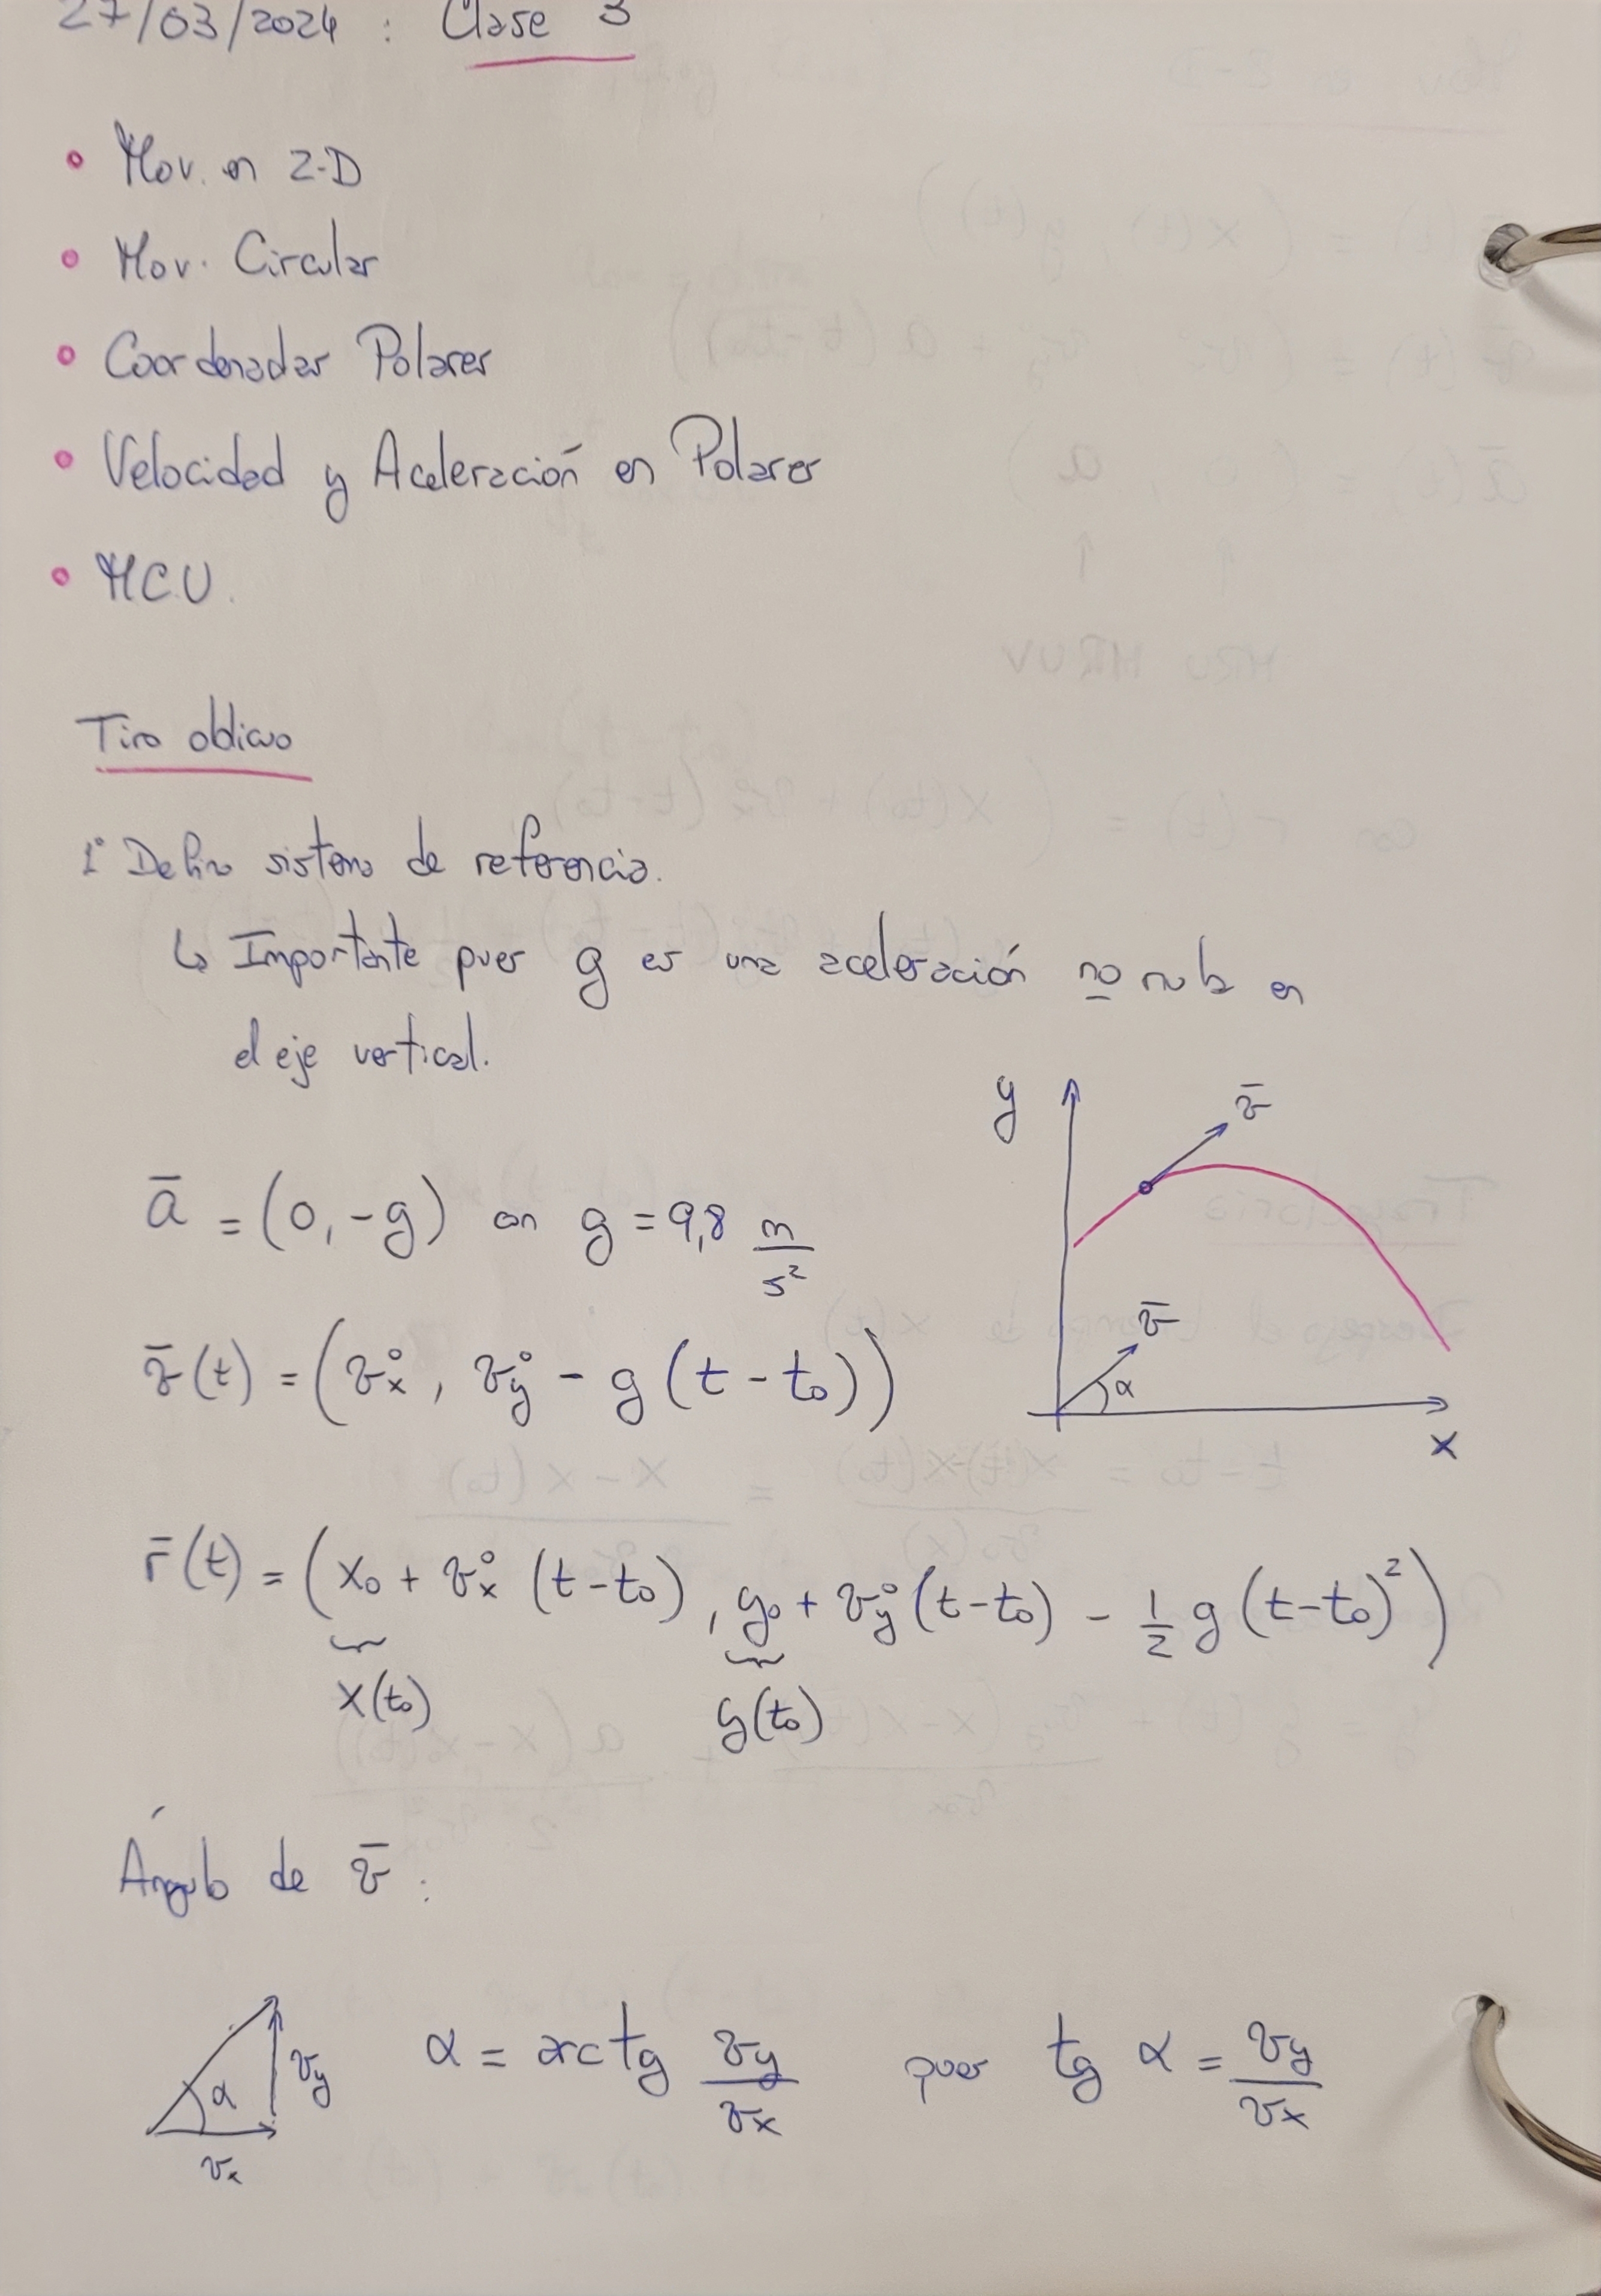 27/03/2024 : Clase 3
• Mov. en 2-D
• Mov. Circular
• Coordenadas Polares
• Velocidad y Aceleración en Polares
• MCU.
Tiro oblicuo
1° Defino sistema de referencia.
↳ Importante pues g es una aceleración no nula en
el eje vertical.
y
v̄
ā = (0, -g) con g = 9,8 m/s²
v̄
α
v̄(t) = (v°x, v°y - g(t - t₀))
x
r̄(t) = (x₀ + v°x (t-t₀), y₀ + v°y (t-t₀) - 1/2 g (t-t₀)²)
x(t₀) y(t₀)
Ángulo de v̄ :
α vy α = arctg vy/vx pues tg α = vy/vx
vx